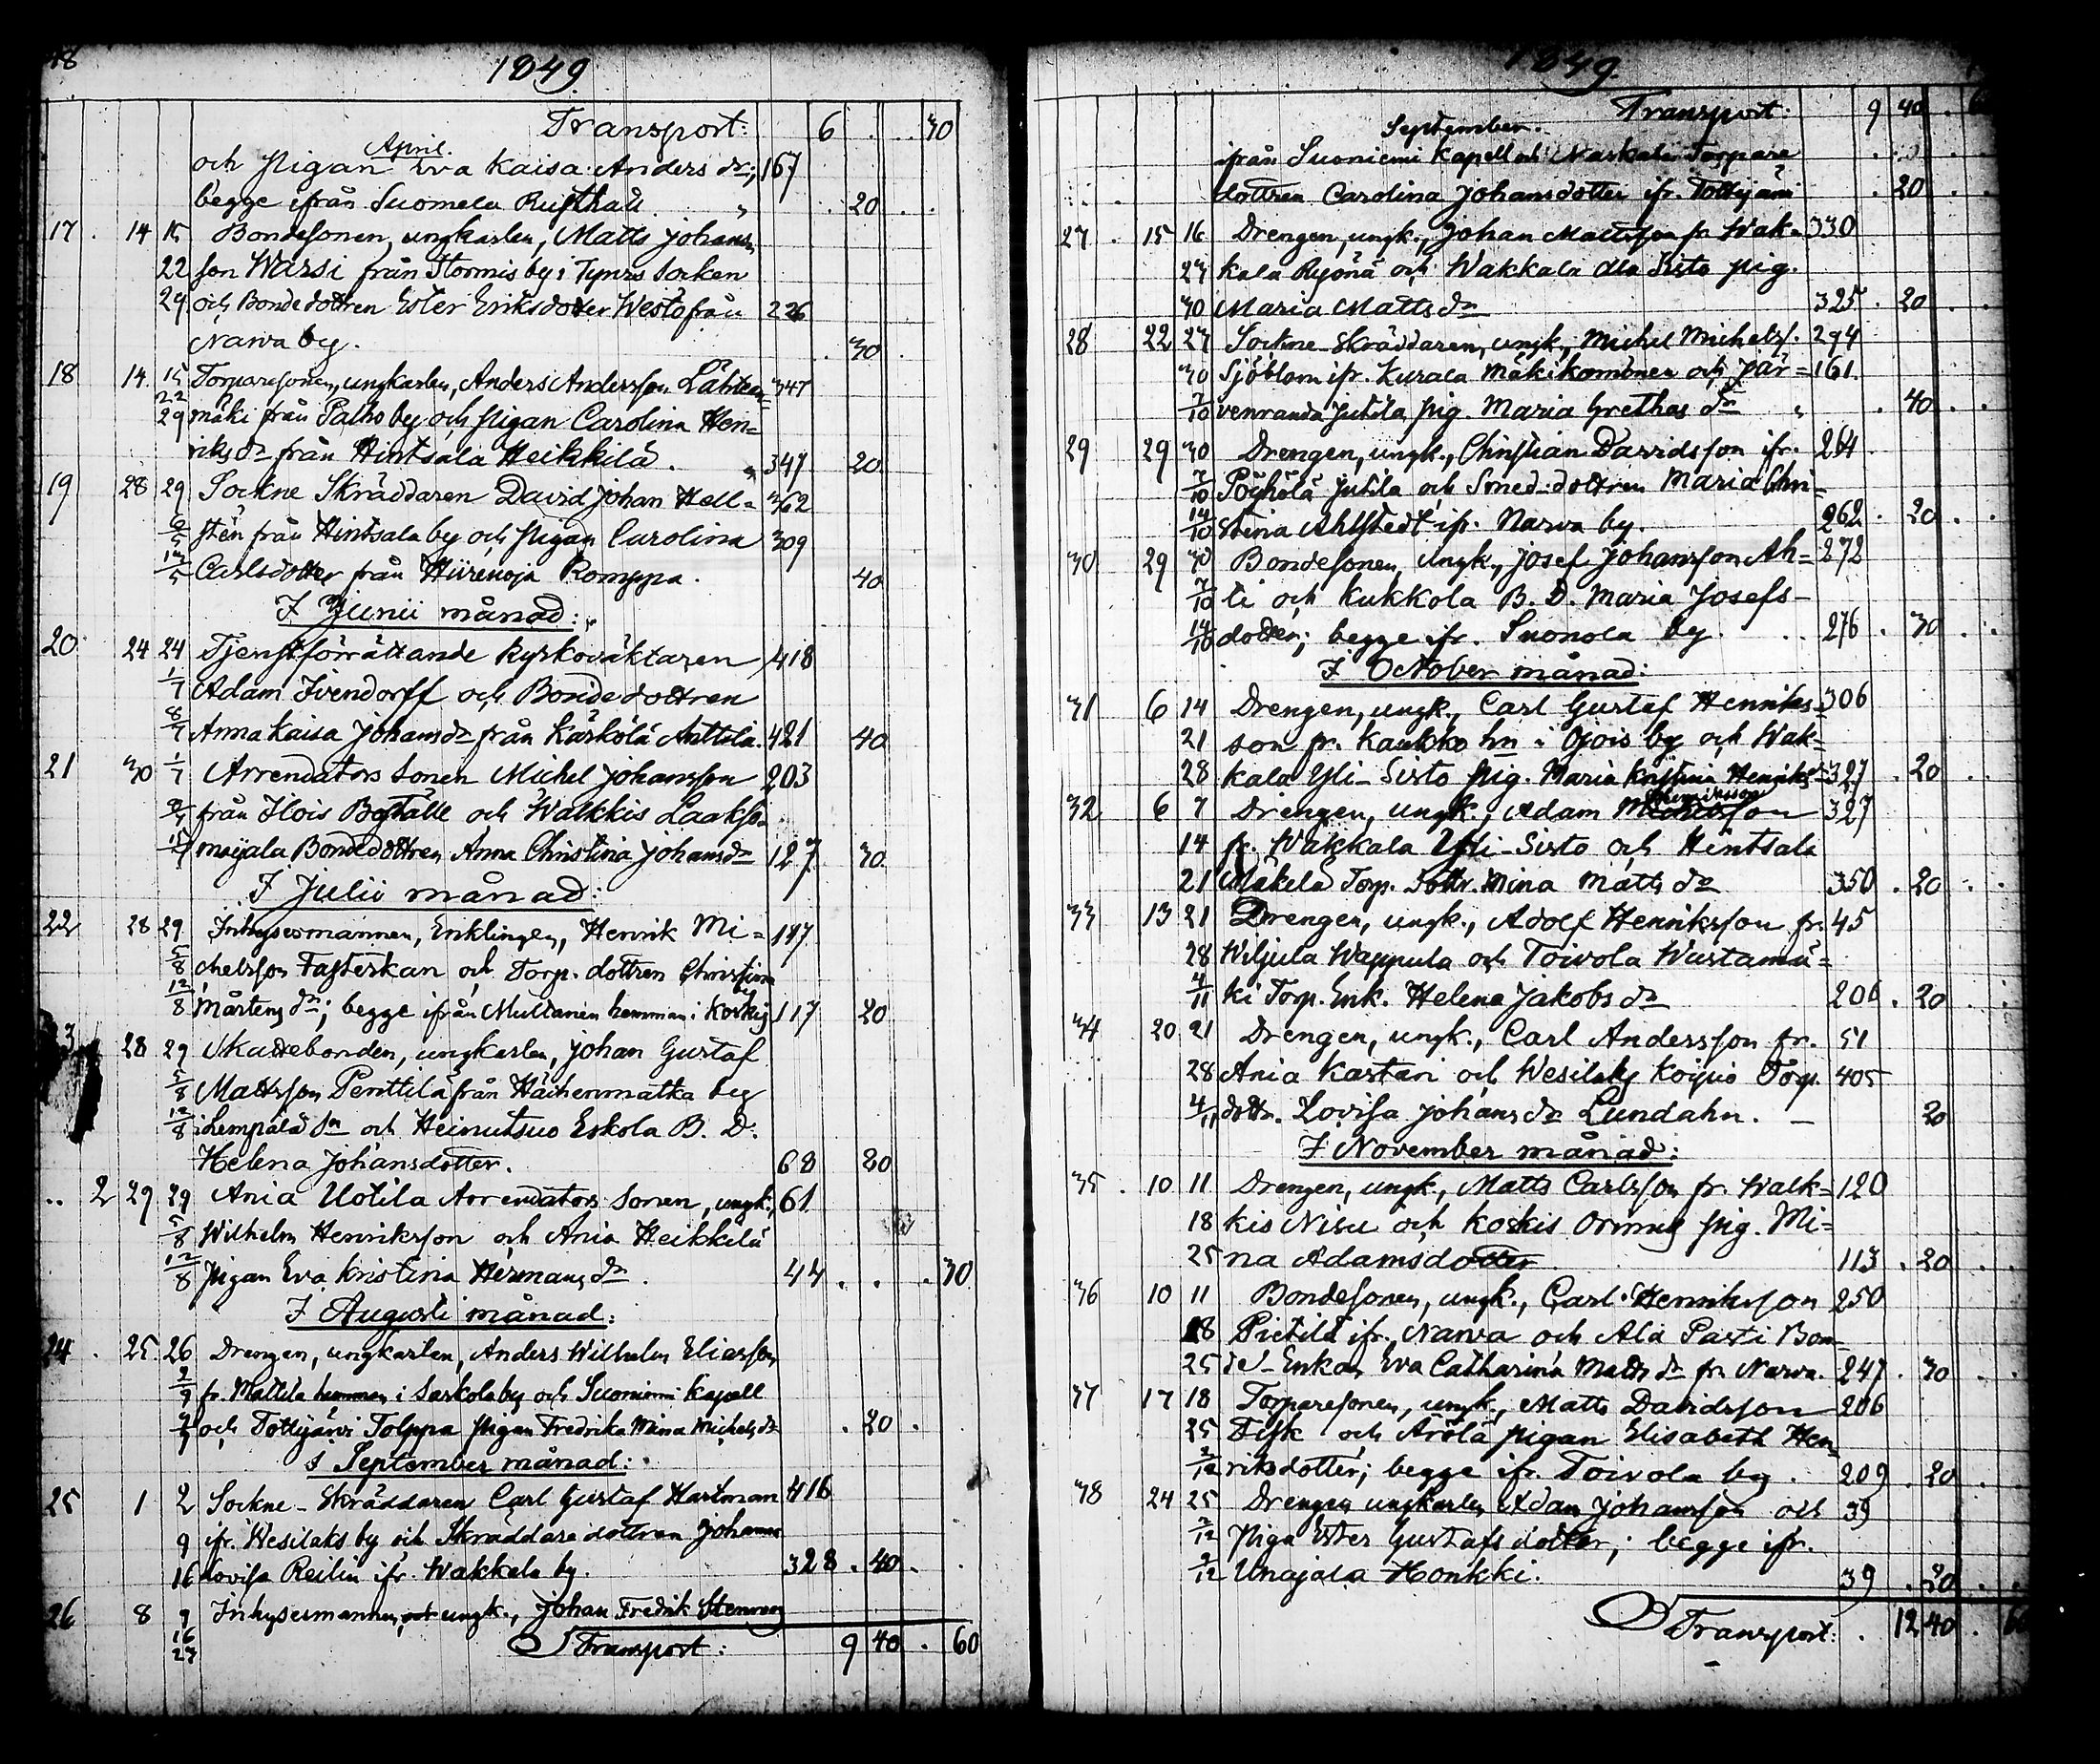 48
1849.
Transport: 6 . . 30
April.
och Pigan Eva Kaisa Anders dr; 167
begge ifrån Suomela Rusthåll . 20 . .
17 . 14 15 Bondesonen, ungkarlen, Matts Johans
22 son Warsi från Stormis by i Tyrvis Socken
29 och Bondedottren Ester Eriksdotter Westo från 226
Narva by. . 30 .
18 14. 15 Torparesonen, ungkarlen, Anders Andersson Lähteen= 347
22
29 mäki från Palho by och Pigan Carolina Hen=
riks dr från Hintsala Heikkilä . 347 20
19 28 29 Sockne Skräddaren David Johan Hell= 362
6/5 sten från Hintsala by och Pigan Carolina 309
13/5 Carlsdotter från Hiirenoja Romppa. 40
I Junii månad:
20 24 24 Tjenstförrättande Kyrkoväktaren 418
1/7 Adam Ivendorff och Bondedottren
8/7 Anna Kaisa Johans dr från Kärkölä Anttila. 421 40
21 30 1/7 Arrendators Sonen Michel Johansson 203
8/7 från Ilois Boställe och Walkkis Laakso=
15/7 maijala Bondedottren Anna Christina Johans dr 127. 30
I Julii månad:
22 28 29 Inhysesmannen, Enklingen, Henrik Mi= 117
5/8 chelsson Fasterkan och Torp. dottren Christina
12/8 Mårtens dr; begge ifrån Multanen hemman i Koskis 117 20
23 28 29 Skattebonden, ungkarlen, Johan Gustaf
5/8 Mattsson Penttilä från Häihenmatka by
12/8 i Lempälä Sn och Heinutsuo Eskola B. D.
Helena Johansdotter. 68 20
.. 2 29 29 Ania Uotila Arrendators Sonen, ungk., 61
5/8 Wilhelm Henriksson och Ania Heikkilä
12/8 Pigan Eva Kristina Hermans dr. 44 . . . 30
I Augusti månad:
24 . 25 26 Drengen, ungkarlen, Anders Wilhelm Eliasson
2/9 fr. Mattila hemman i Sarkola by och Suoniemi Kapell
9/9 och Tottijärvi Tolppa Pigan Fredrika Mina Michels dr . 20 .
i September månad:
25 1 2 Sockne-Skräddaren Carl Gustaf Hartman 416
9 ifr. Wesilaks by och Skräddare dottren Johanna
16 Lovisa Reilin ifr. Wakkala by. 328 . 40 .
26 8 9 Inhysesmannen, ungk., Johan Fredrik Stenman
16
23 Transport: 9 40 . 60
1849.
Transport: 9 40 . 60
September.
ifrån Suoniemi Kapell och Naskala Torpare
dottren Carolina Johansdotter ifr. Tottijärvi . 20
27 . 15 16 Drengen, ungk., Johan Mattsson fr. Wak= 330
23 kala Ryönä och Wakkala Ala Sisto pig.
30 Maria Matts dr 325 . 20
28 22 23 Sockne-Skräddaren, ungk., Michel Michelss. 294
30 Sjöblom ifr. Kurala Mäkikomonen och Jär= 161.
7/10 venranda Jutila, pig. Maria Grethas dr . 40
29 29 30 Drengen, ungk., Christian Davidsson ifr. 264
7/10 Pöyhölä Jutila och Smed-dottren Maria Chri=
14/10 stina Ahlstedt ifr. Narva by. 262 . 20
30 29 30 Bondesonen, ungk., Josef Johansson Ah= 272
7/10 ti och Kukkola B. D. Maria Josefs-
14/10 dotter; begge ifr. Suonola by. 276 . 30
I October månad:
31 6 14 Drengen, ungk., Carl Gustaf Henriks= 306
21 son fr. Kaukko hn i Ojois by och Wak=
28 kala Yli-Sisto pig. Maria Kristina Henriks dr 327 . 20
32 6 7 Drengen, ungk., Adam Henriksson 327
14 fr. Wakkala Yli-Sisto och Hintsala
21 Mäkelä Torp. Dottr. Mina Matts dr 350 . 20
33 13 21 Drengen, ungk., Adolf Henriksson fr. 45
28 Wiljula Wappula och Toivola Wastamä=
4/11 ki Torp. Enk. Helena Jakobs dr 206 . 20
34 20 21 Drengen, ungk., Carl Andersson fr. 51
28 Ania Kastari och Wesilaks Koipio Torp. 405
4/11 dottr. Lovisa Johans dr Lundahn. – 20
I November månad:
35 . 10 11 Drengen, ungk., Matts Carlsson fr. Walk= 120
18 kis Nisu och Koskis Ormus pig. Mi=
25 na Adamsdotter 113 . 20
36 10 11 Bondesonen, ungk., Carl Henriksson 250
18 Pietilä ifr. Narva och Ala Pasti Bon=
25 de-Enkan Eva Catharina Matts dr fr. Narva. 247 . 30
37 17 18 Torparesonen, ungk., Matts Davidsson 206
25 Fisk och Arölä pigan Elisabeth Hen=
2/12 riksdotter; begge ifr. Toivola by. 209 . 20
38 24 25 Drengen ungkarlen Adam Johansson och 39
2/12 Piga Ester Gustafsdotter; begge ifr.
9/12 Unajala Honkki. 39 . 20
Transport: . 12 40 . 60